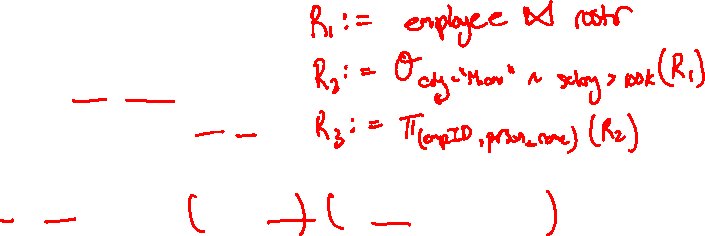 R₁ := employee ⋈ 
R₂ := σ city="Miami" ∧ salary > 100k (R₁)
R₃ := π (empID, person_name) (R₂)
( ) ( )